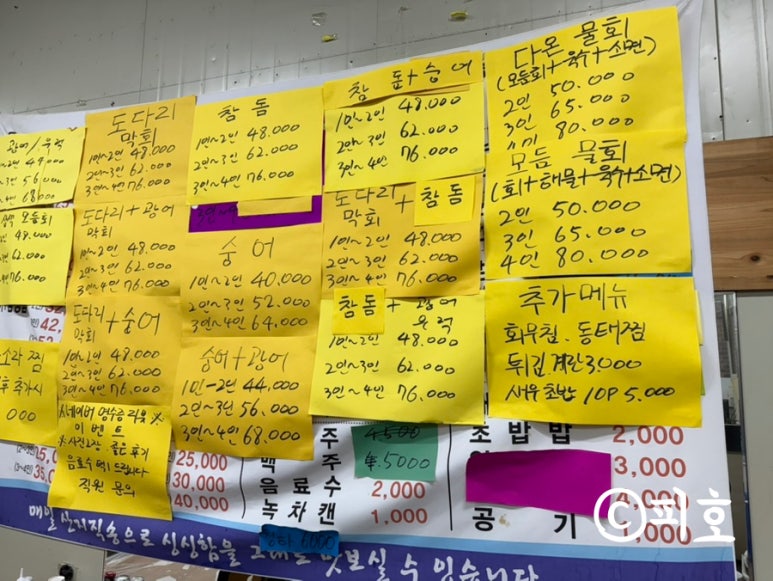 광어/우럭
2인 49.000
3인 56.000
4인 68.000
모듬회
48.000
62.000
76.000
소라 찜
후 추가시
000
도다리
막회
1인~2인 48.000
2인~3인 62.000
3인~4인 76.000
도다리+광어
막회
1인~2인 48.000
2인~3인 62.000
3인~4인 76.000
도다리+숭어
막회
1인~2인 48.000
2인~3인 62.000
3인~4인 76.000
※네이버 영수증 리뷰※
이벤트
음료수 1병 드립니다
직원 문의
참돔
1인~2인 48.000
2인~3인 62.000
3인~4인 76.000
숭어
1인~2인 40.000
2인~3인 52.000
3인~4인 64.000
숭어+광어
1인-2인 44,000
2인~3인 56.000
3인~4인 68.000
참돔+숭어
1인~2인 48.000
2인~3인 62.000
3인~4인 76.000
도다리 + 참돔
막회
1인~2인 48.000
2인~3인 62.000
3인~4인 76.000
참돔 + 광어
우럭
1인~2인 48.000
2인~3인 62.000
3인~4인 76.000
다온 물회
(모듬회+육수+소면)
2인 50.000
3인 65.000
80.000
모듬 물회
(회+해물+육수+소면)
2인 50.000
3인 65.000
4인 80.000
추가메뉴
회무침. 동태찜
튀김.계란 3.000
새우초밥 10P 5.000
25,000
30,000
40,000
주 4500
맥 주 ₩.5000
음료수 2,000
녹차캔 1,000
초밥밥 2,000
3,000
4,000
공 기 1,000
6000
매일 산지직송으로 싱싱함을 그대로 맛보실 수 있습니다
©피호